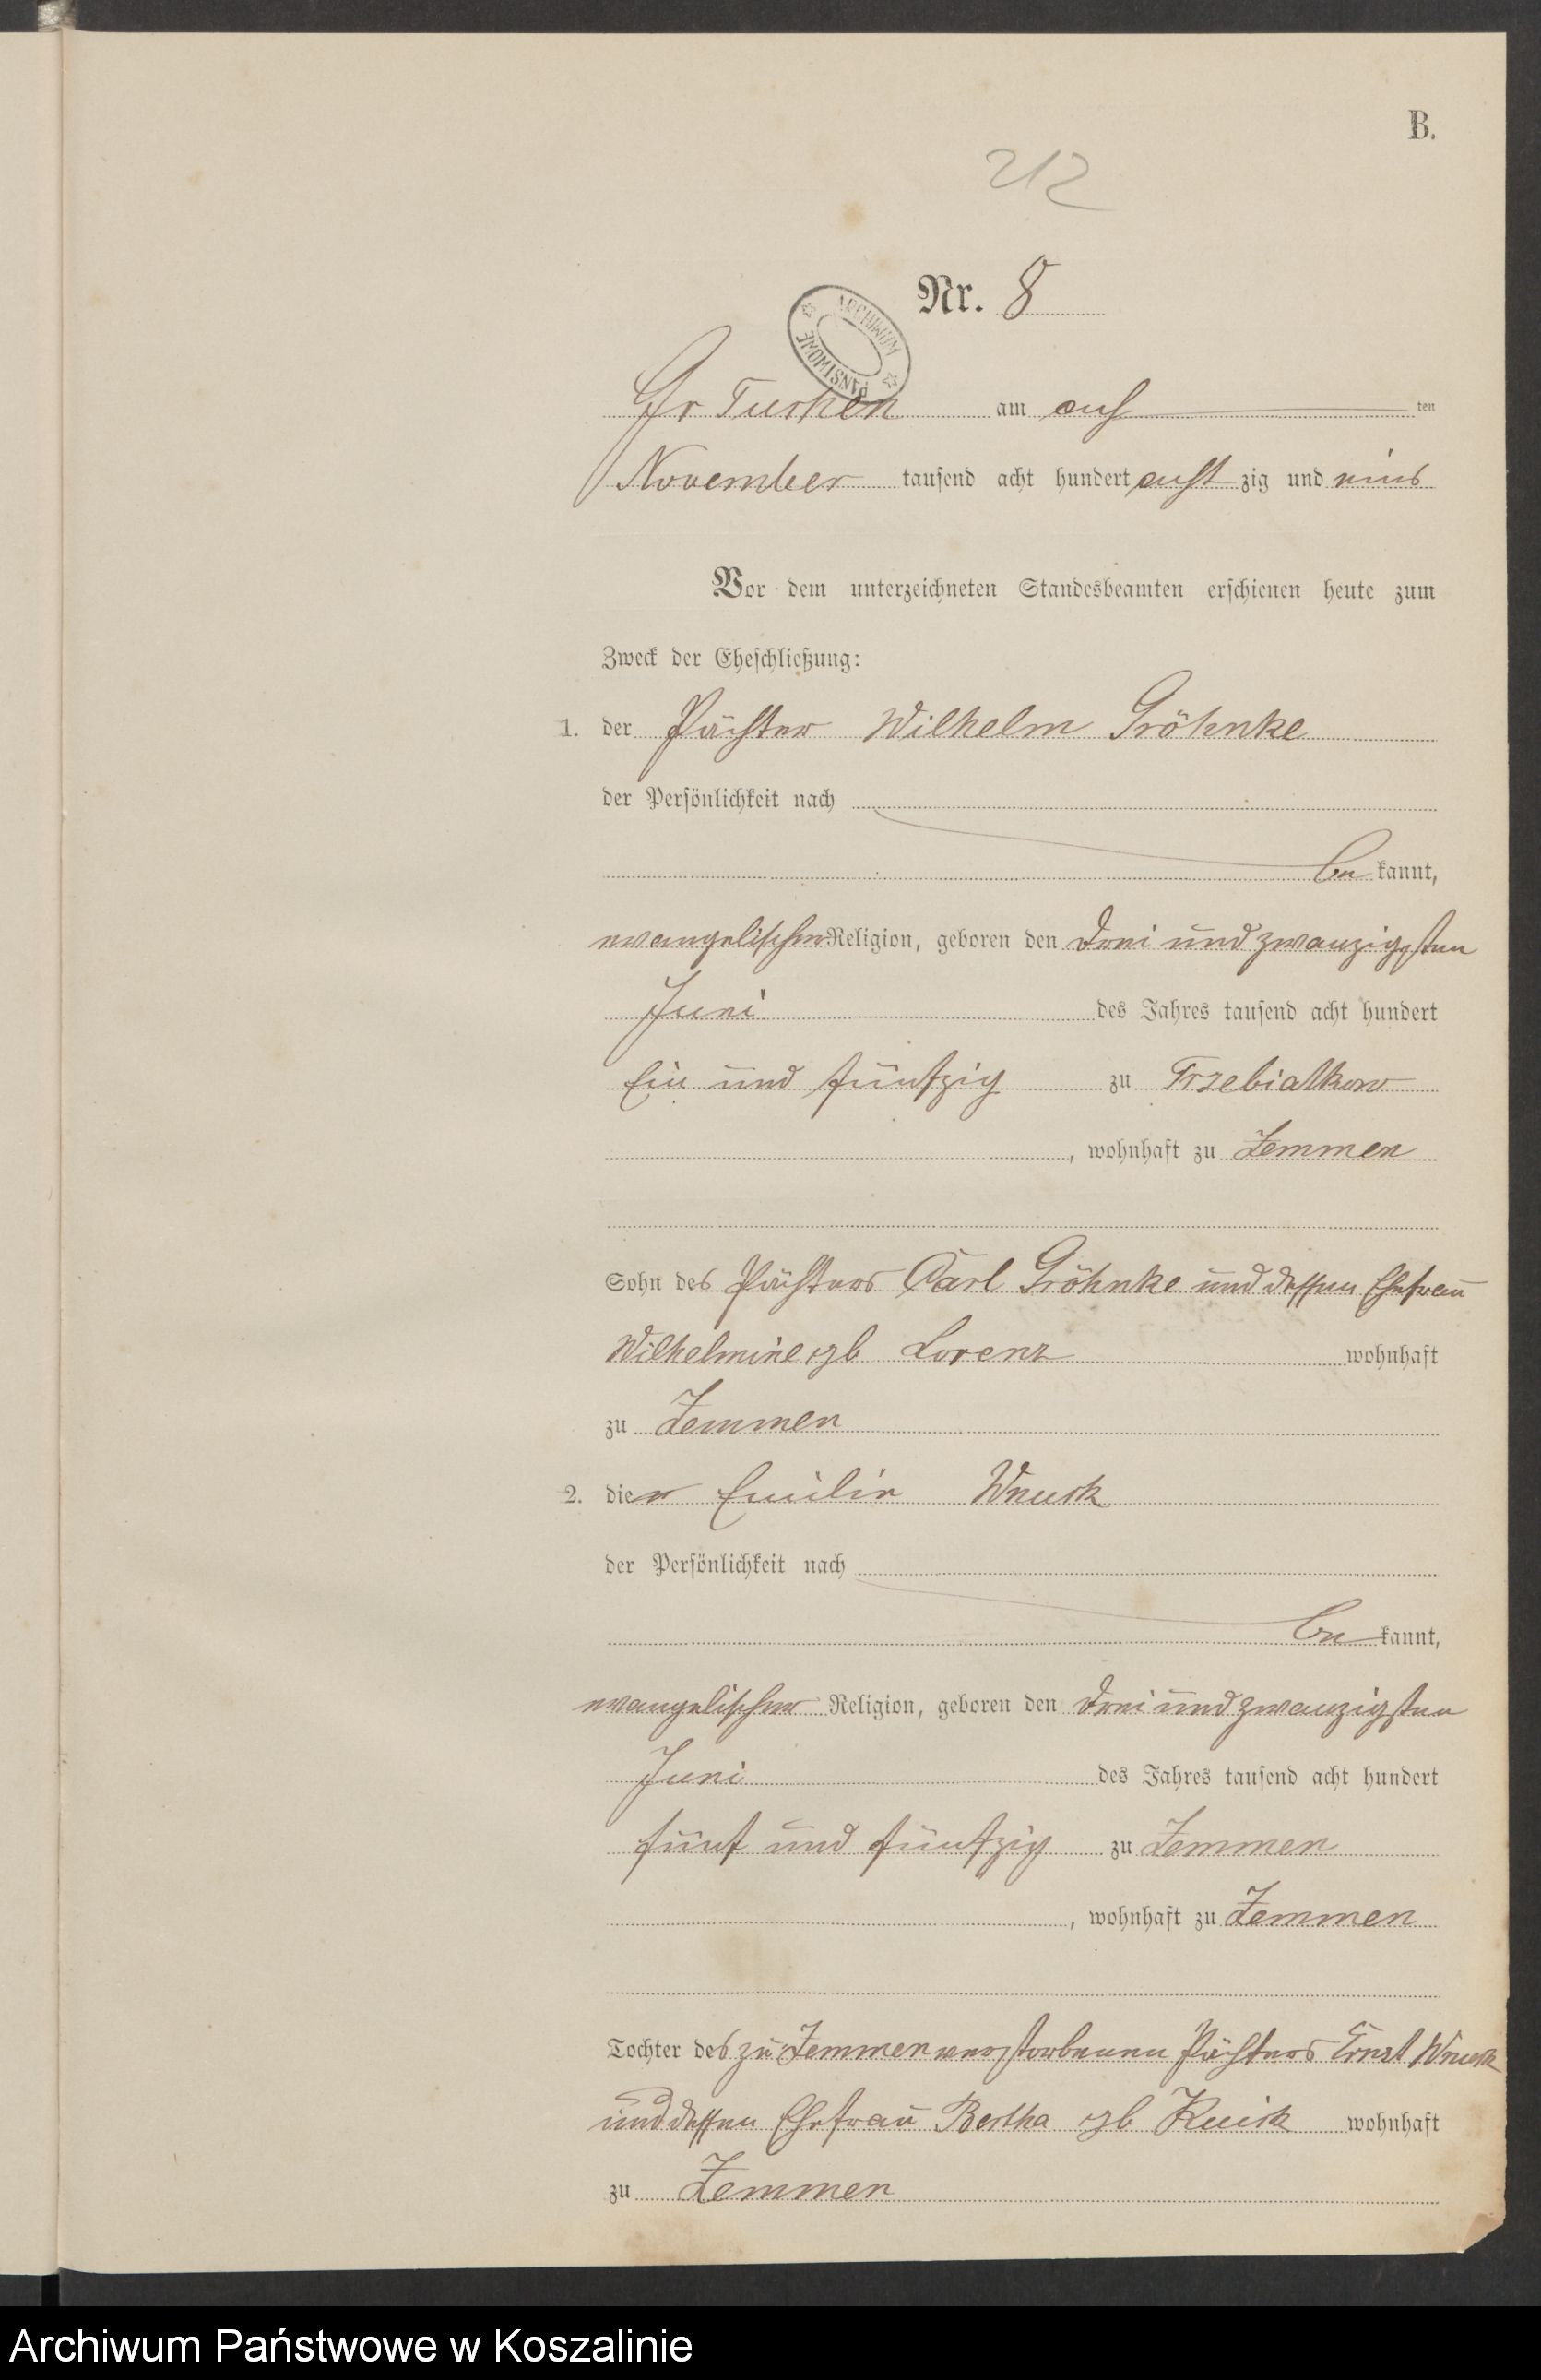 B.
212
Nr. 8
ARCHIWUM PAŃSTWOWE
Gr Tuchen am acht ten
November tausend acht hundert acht zig und eins
Vor dem unterzeichneten Standesbeamten erschienen heute zum
Zweck der Eheschließung:
1. der Pächter Wilhelm Gröhnke
der Persönlichkeit nach
be kannt,
evangelischer Religion, geboren den drei und zwanzigsten
Juni des Jahres tausend acht hundert
ein und fünfzig zu Trzebiatkow
, wohnhaft zu Zemmen
Sohn des Pächters Carl Gröhnke und dessen Ehefrau
Wilhelmine gb Lorenz wohnhaft
zu Zemmen
2. die Emilie Wnuck
der Persönlichkeit nach
be kannt,
evangelischer Religion, geboren den drei und zwanzigsten
Juni des Jahres tausend acht hundert
fünf und fünfzig zu Zemmen
, wohnhaft zu Zemmen
Tochter des zu Zemmen verstorbenen Pächters Ernst Wnuck
und dessen Ehefrau Bertha gb wohnhaft
zu Zemmen
Archiwum Państwowe w Koszalinie